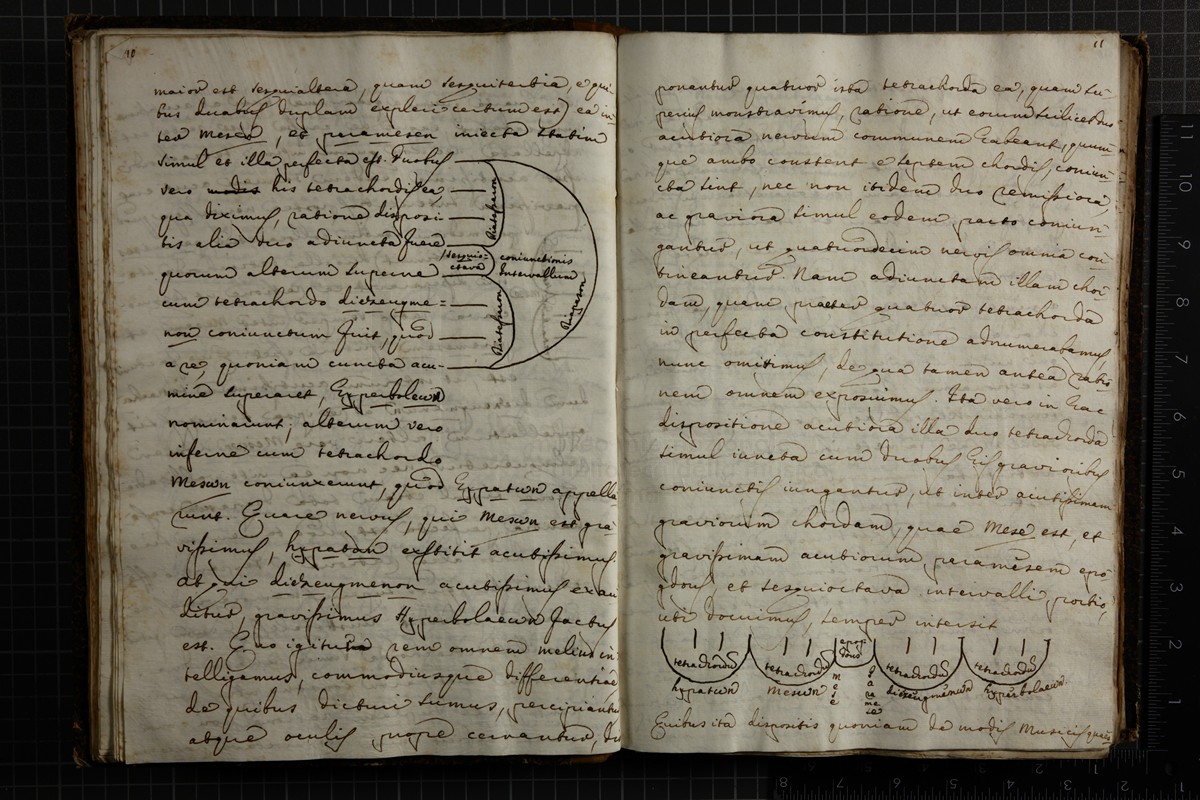 10
maior est sesquialtera, quam sesquitertia, e qui
bus duabus duplam expleri certum est) ea in
ter Mesen, et paramesen iniecta statim
simul et illa perfecta est. Duobus
vero modis his tetrachordis ea,
qua diximus, ratione disposi-
tis alia duo adiuncta fuere
quorum alterum superne
cum tetrachordo diezeugme=
non coniunctum fuit, quod
a re, quoniam cuncta acu-
mine superaret, Hyperbolewn
nominarunt; alterum vero
inferne cum tetrachordo
Meswn coniunxerunt, quod Hypatwn appella
runt. Quare nervus, qui Meswn est gra
vissimus, hypaton exstitit acutissimus.
at qui diezeugmenon acutissimus exau
ditur, gravissimus Hyperbolaewn factus
est. Quo igitur rem omnem melius in
telligamus, commodiusque differentiae
de quibus dicturi sumus, percipiantur
atque oculis prope cernantur, dis
diatessaron
sesquio-
ctava
coniunctionis
Intervallum
diatessaron
diapason
11
ponantur quatuor ista tetrachorda ea, quam su-
perius monstravimus, ratione, ut eorum scilicet duo
acutiora nervum communem habeant, quum-
que ambo constent e septem chordis, coniun-
cta sint, nec non itidem duo remissiora,
ac graviora simul eodem pacto coniun-
gantur, ut quatuordecim nervis omnia con
tineantur. Nam adiunctam illam chor
dam, quam praeter quatuor tetrachorda
in perfecta constitutione adnumerabamus
nunc omittimus, de qua tamen antea ratio
nem omnem exposuimus. Ita vero in hac
dispositione acutiora illa duo tetrachorda
simul iuncta cum duobus his gravioribus
coniunctis iungantur, ut inter acutissimam
graviorum chordam, quae Mese est, et
gravissimam acutiorum paramesem epo
gdous, et sesquioctava intervalli portio,
uti docuimus, semper intersit
tetrachordus
tetrachordus
epog
dous
tetrachordus
tetrachordus
hypatwn
meswn
mese
paramese
diezeugmenwn
hyperbolaewn
Quibus ita dispositis quoniam de modis Musicis quaes